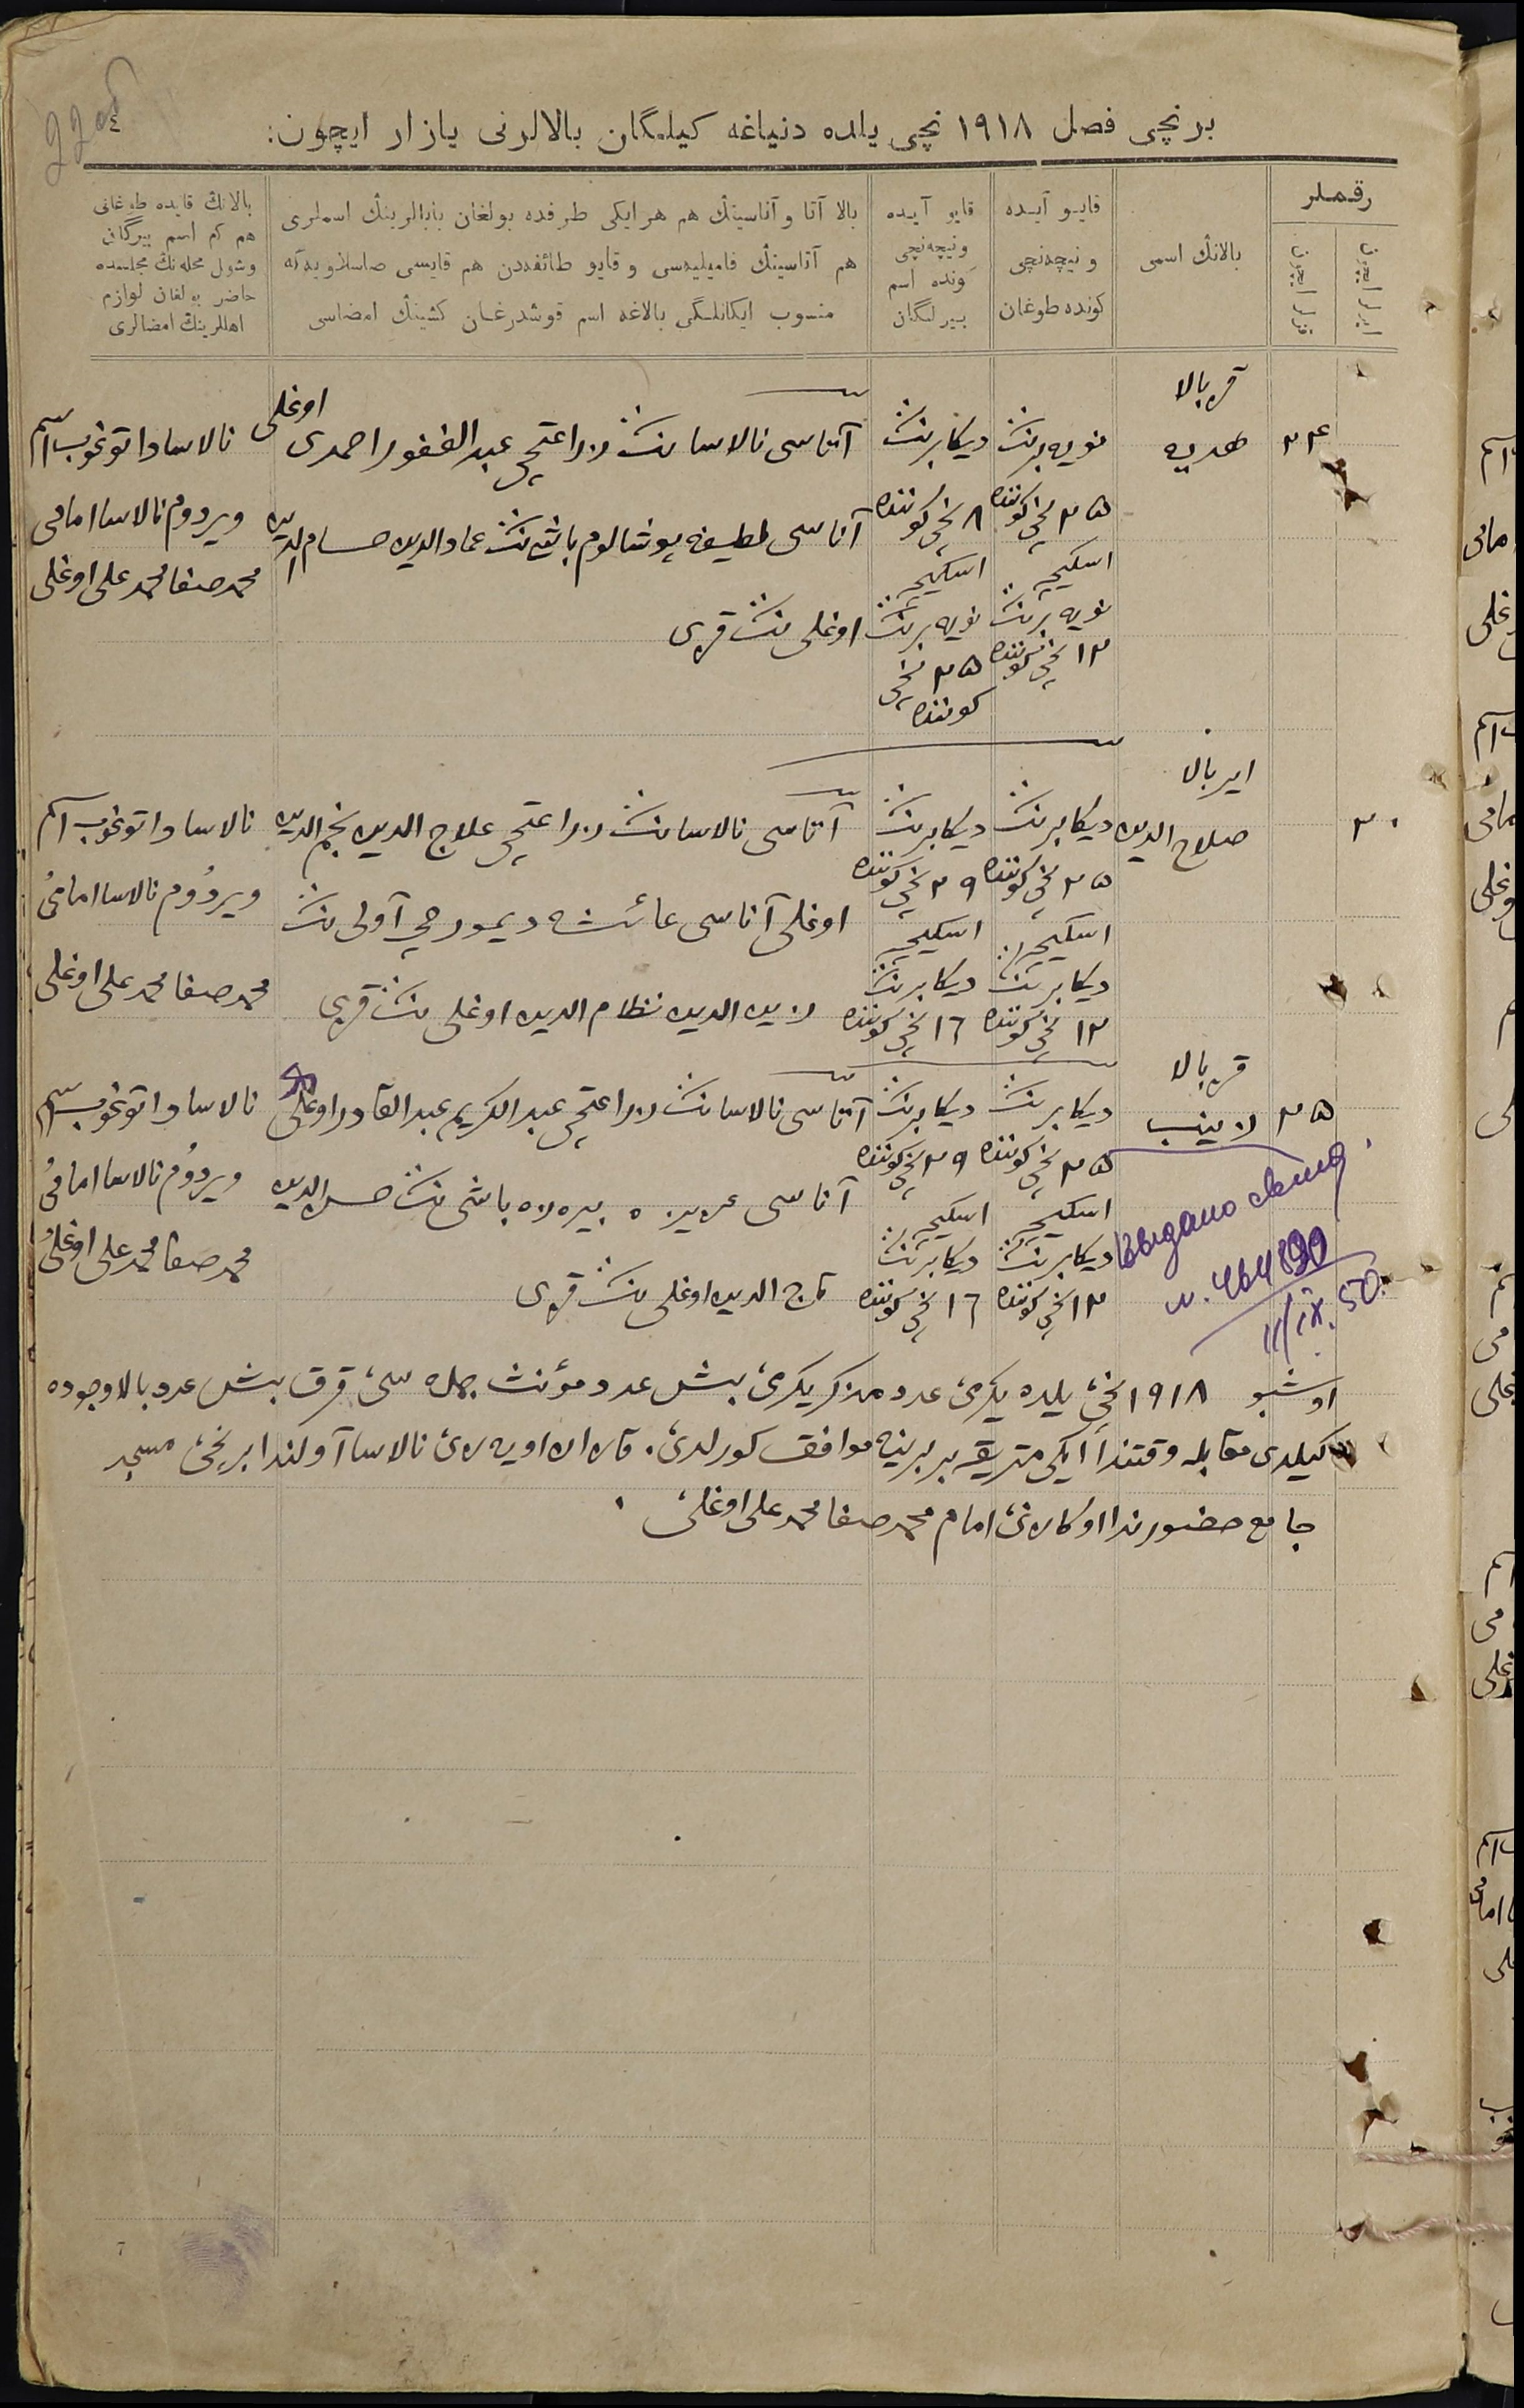 برنچی فصل ١٩١٨ نچی یلده دنیاغه کیلمگان بالالرنی یازار ایچون:
رقملر
ایرلر ایچون
قزلر ایچون
بالانڭ اسمی
قایو آیده
و نیچه‌نچی
کونده طوغان
قایو آیده
و نیچه‌نچی
کونده اسم
بیرلگان
بالا آتا و آناسینڭ هم هر ایکی طرفده بولغان بابالرینڭ اسملری
هم آتاسینڭ فامیلیه‌سی و قایو طائفه‌دن هم قایسی صاسلاویه‌گه
منسوب ایکانلگی بالاغه اسم قوشدرغان کشینڭ امضاسی
بالانڭ قایده طوغانی
هم کم اسم بیرگان
وشول محله‌نڭ مجلسده
حاضر بولغان لوازم
اهللرینڭ امضالری
قز بالا
٢٤
هدیه
نویه برنڭ
٢٥ نچی کوننده
اسکیچه
نویه برنڭ
١٢ نچی کوننده
دیکابرنڭ
٨ نچی کوننده
اسکیچه
نویه برنڭ
٢٥ نچی
کوننده
آتاسی نالاسانڭ زراعتچی عبدالغفور احمدی اوغلی
آناسی لطیفه پوشالوم باشی نڭ عماد الدین حسام الدین
اوغلی نڭ قزی
نالاسادا توغوب اسم
ویردوم نالاسا امامی
محمد صفا محمد علی اوغلی
ایر بالا
٢٠
صلاح الدین
دیکابرنڭ
٢٥ نچی کوننده
اسکیچه
دیکابرنڭ
١٢ نچی کوننده
دیکابرنڭ
٢٩ نچی کوننده
اسکیچه
دیکابرنڭ
١٦ نچی کوننده
آتاسی نالاسانڭ زراعتچی علاج الدین نجم الدین
اوغلی آناسی عائشه دیمورچی آولی نڭ
زین الدین نظام الدین اوغلی نڭ قزی
نالاسادا توغوب اسم
ویردوم نالاسا امامی
محمد صفا محمد علی اوغلی
قز بالا
٢٥
زینب
دیکابرنڭ
٢٥ نچی کوننده
اسکیچه
دیکابرنڭ
١٢ نچی کوننده
دیکابرنڭ
٢٩ نچی کوننده
اسکیچه
دیکابرنڭ
١٦ نچی کوننده
آتاسی نالاسانڭ زراعتچی عبدالکریم عبدالقادر اوغلی
آناسی عزیزه بیره زه باشی نڭ حسن الدین
تاج الدین اوغلی نڭ قزی
نالاسادا توغوب اسم
ویردوم نالاسا امامی
محمد صفا محمد علی اوغلی
Выдано
11/IX. 50.
اوشبو ١٩١٨ نچی یلده یکرمی عدد مذکر یکرمی بش عدد مؤنث جمله سی قرق بش عدد بالا وجوده
کیلدی مقابله وقتندا ایکی متریقه بر برینه موافق کورلدی. نالاسا آولندا برنچی مسجد
جامع حضورندا امام محمد صفا محمد علی اوغلی